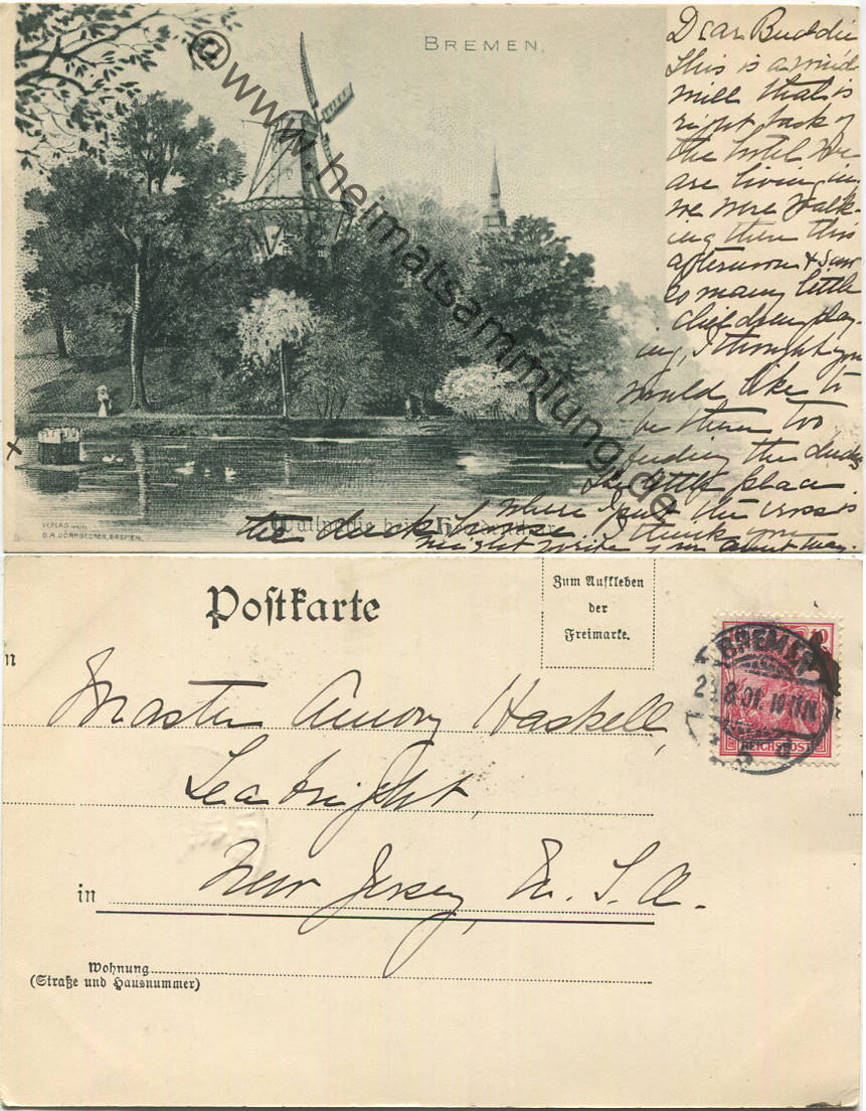 BREMEN.
Dear Buddie
This is a wind
mill that is
right back of
the hotel we
are living in
we were walk-
ing there this
afternoon & saw
so many little
children play-
ing, I thought you
would like to
be there too
feeding the ducks
The little place
where I put the cross is
the duck house. I think you
might write me about
Wallpartie beim Heerdenthor
VERLAG
BREMEN.
©www.heimatsammlung.de
Postkarte
Zum Aufkleben
der
Freimarke.
BREMEN
8.01.10-11N
REICHSPOST
n
Master Amory Haskell,
Seabright,
in New Jersey, U. S. A.
Wohnung
(Straße und Hausnummer)